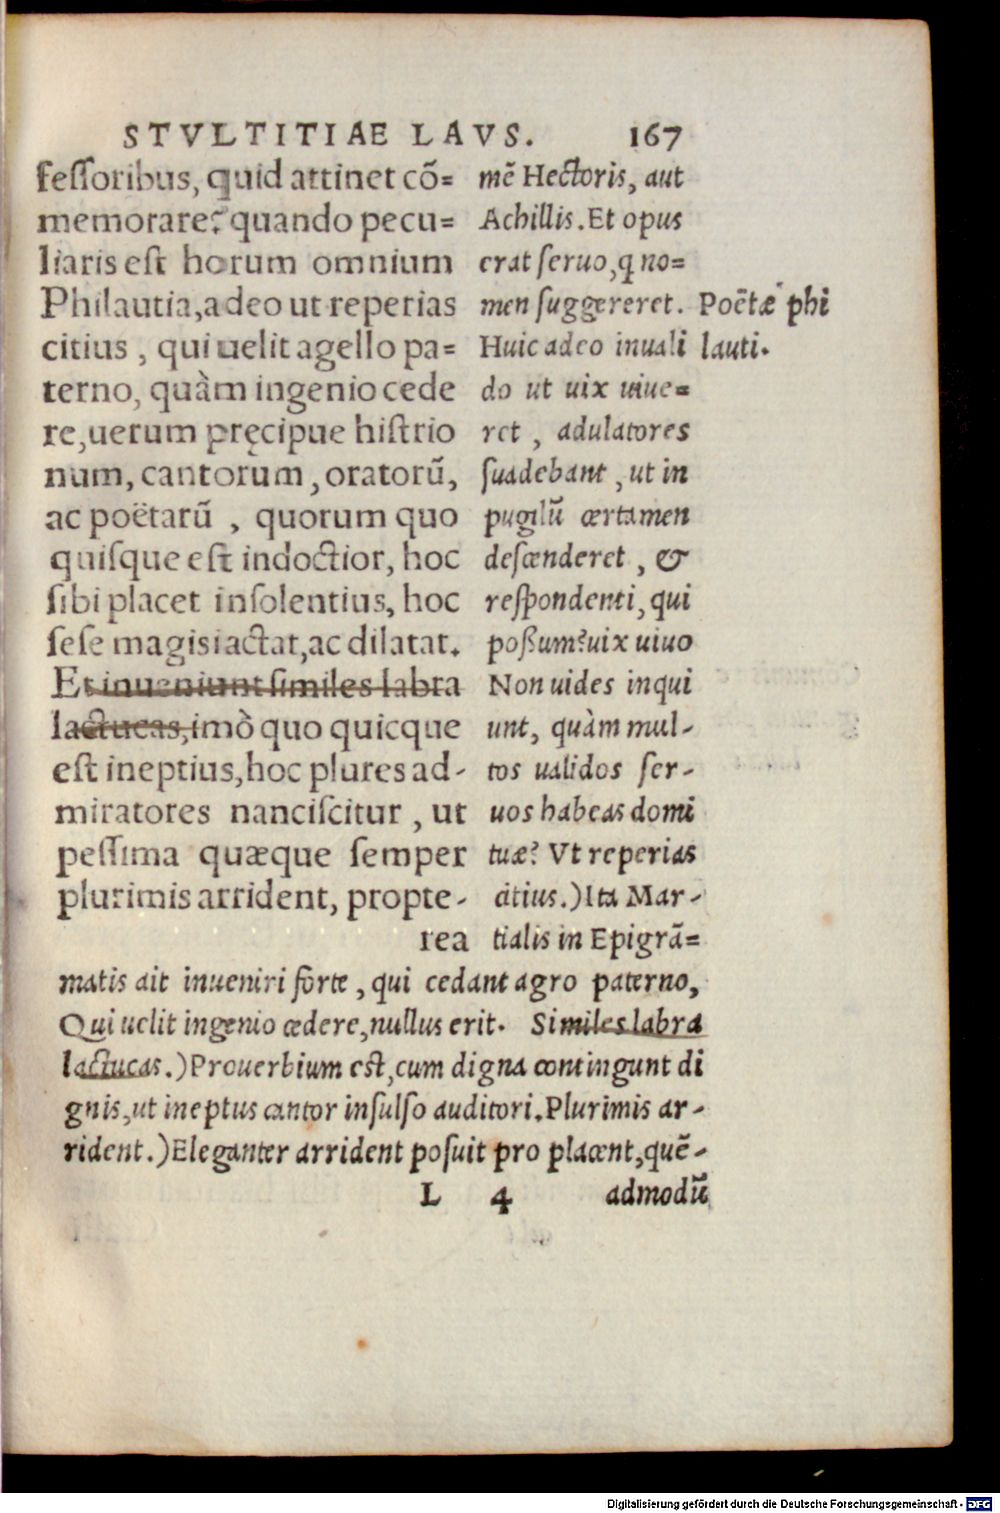 STVLTITIAE LAVS. 167
feſſoribus, quid attinet cō=
memorare? quando pecu=
liaris eſt horum omnium
Philautia, adeo ut reperias
citius, qui uelit agello pa=
terno, quàm ingenio cede
re, uerum pręcipue hiſtrio
num, cantorum, oratorū,
ac poëtarū, quorum quo
quiſque eſt indoctior, hoc
ſibi placet inſolentius, hoc
ſeſe magis iactat, ac dilatat.
Et inueniunt ſimiles labra
lactucas, imò quo quicque
eſt ineptius, hoc plures ad-
miratores nanciſcitur, ut
peſſima quæque ſemper
plurimis arrident, propte-
rea
mē Hectoris, aut
Achillis. Et opus
erat ſeruo, q no=
men ſuggereret.
Huic adeo inuali
do ut uix uiue=
ret, adulatores
ſuadebant, ut in
pugilū certamen
deſcenderet, &
reſpondenti, qui
poßum? uix uiuo
Non uides inqui
unt, quàm mul-
tos ualidos ſer-
uos habeas domi
tuæ? Vt reperias
citius.) Ita Mar-
tialis in Epigrā=
Poëtæ phi
lauti.
matis ait inueniri forte, qui cedant agro paterno,
Qui uelit ingenio cedere, nullus erit. Similes labra
lactucas.) Prouerbium eſt, cum digna contingunt di
gnis, ut ineptus cantor inſulſo auditori. Plurimis ar-
rident.) Eleganter arrident poſuit pro placent, quē-
L 4 admodū
Digitalisierung gefördert durch die Deutsche Forschungsgemeinschaft - DFG